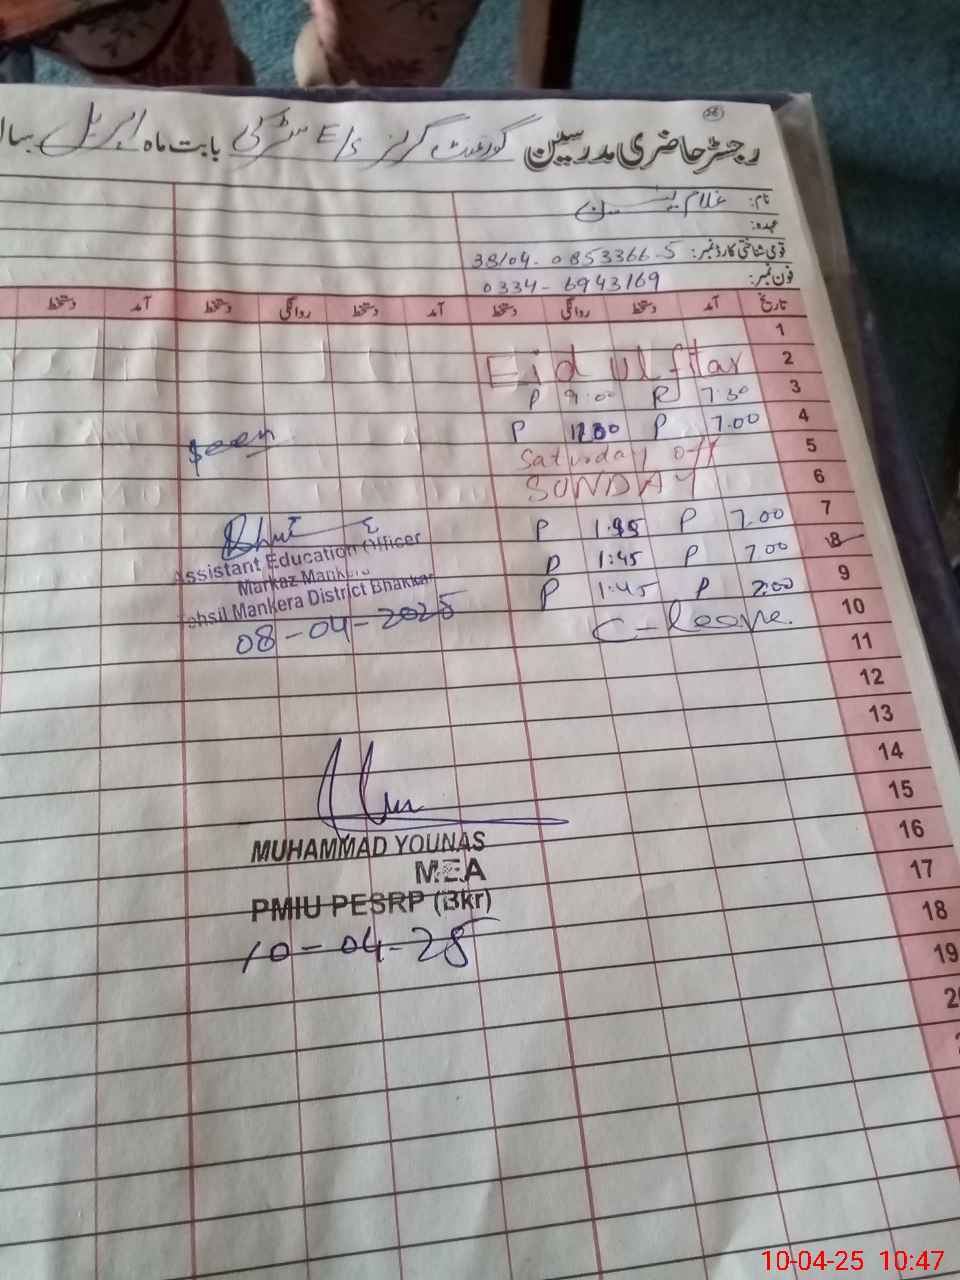 26
رجسٹر حاضری مدرسین گورنمنٹ گرلز E/S بابت ماہ اپریل
نام: غلام یٰسین
عہدہ:
قومی شناختی کارڈ نمبر: 38104-0853366-5
فون نمبر: 0334-6943169
تاریخ آمد دستخط روانگی دستخط آمد دستخط روانگی دستخط آمد دستخط
1
2 Eid ul-ftar
3 7:30 P 9:00 P
4 7.00 P P
5 Saturday off
6 SUNDAY
7 7.00 P P
8 7.00 P 1:45 P
9 7:00 P 1:45 P
10 C-leave.
11
12
13
14
15
16
17
18
19
Seen
Assistant Education Officer
Markaz Mankera
Tehsil Mankera District Bhakkar
08-04-2025
MUHAMMAD YOUNAS
MEA
PMIU PESRP (Bkr)
10-04-25
10-04-25 10:47